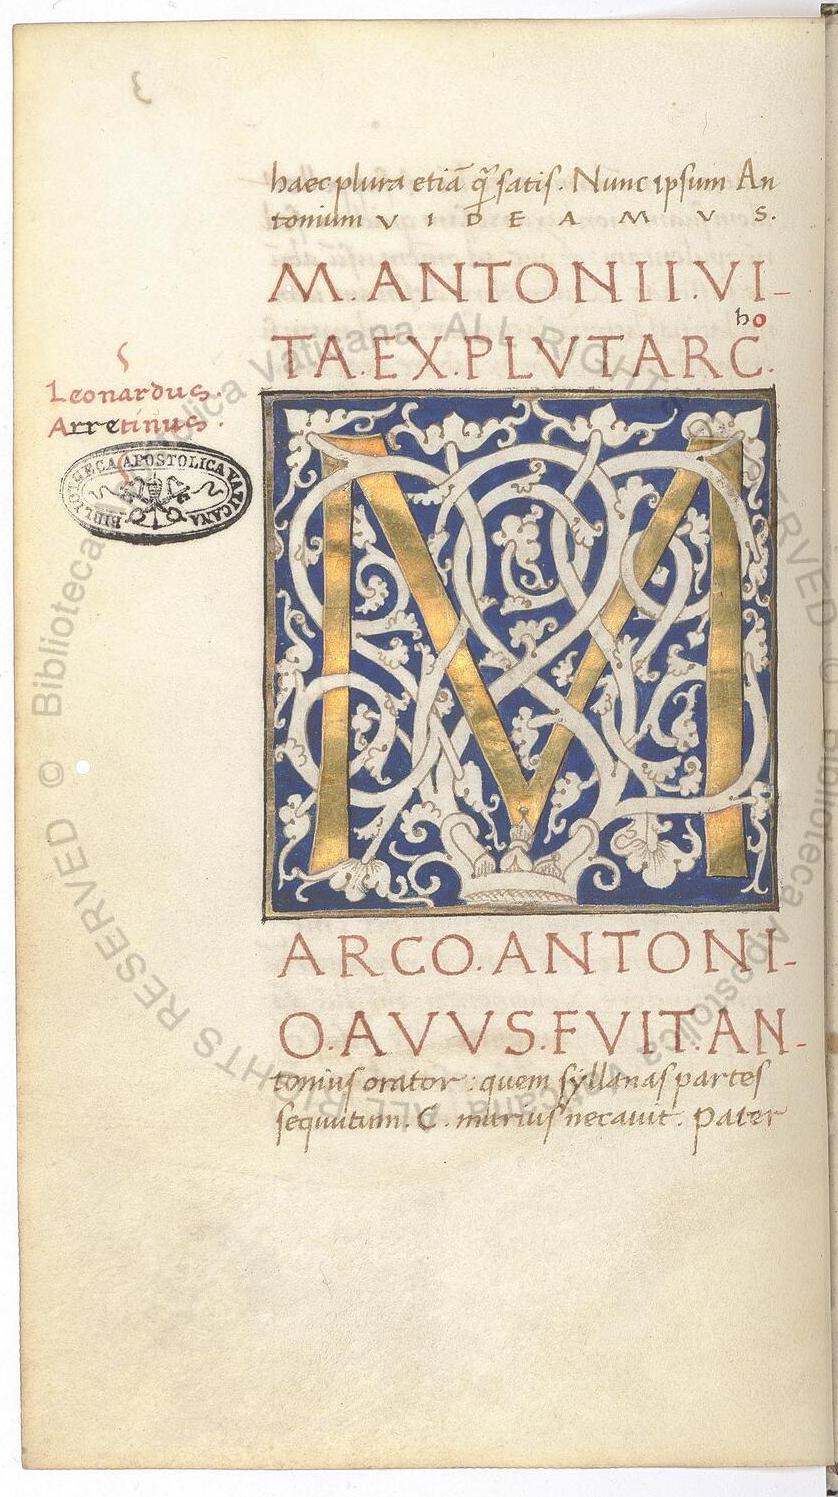 haec plura etiā q̄ satis. Nunc ipsum An
tonium V I D E A M V S.
M. ANTONII. VI-
TA. EX. PLVTARC.
ho
Leonardus.
Arretinus.
BIBLIOTHECA APOSTOLICA VATICANA
M
ARCO. ANTONI-
O. AVVS. FVIT. AN-
tonius orator: quem syllanas partes
sequutum. C. marius necavit. Pater
© Biblioteca Apostolica Vaticana ALL RIGHTS RESERVED
© Biblioteca Apostolica Vaticana ALL RIGHTS RESERVED